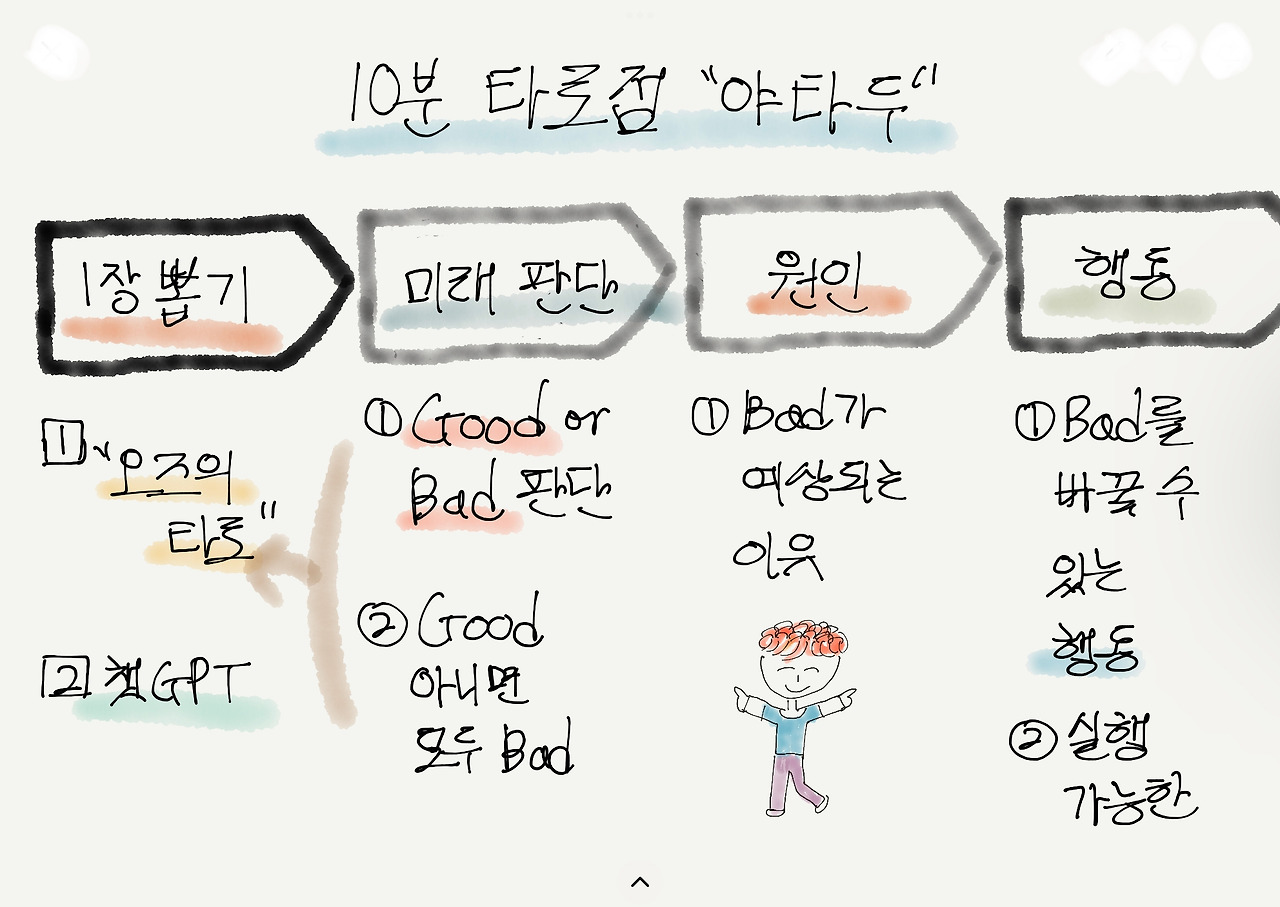 10분 타로점 "야타두"
1장 뽑기
미래 판단
원인
행동
1 "오즈의
타로"
2 챗GPT
① Good or
Bad 판단
② Good
아니면
모두 Bad
① Bad가
예상되는
이유
① Bad를
바꿀 수
있는
행동
② 실행
가능한